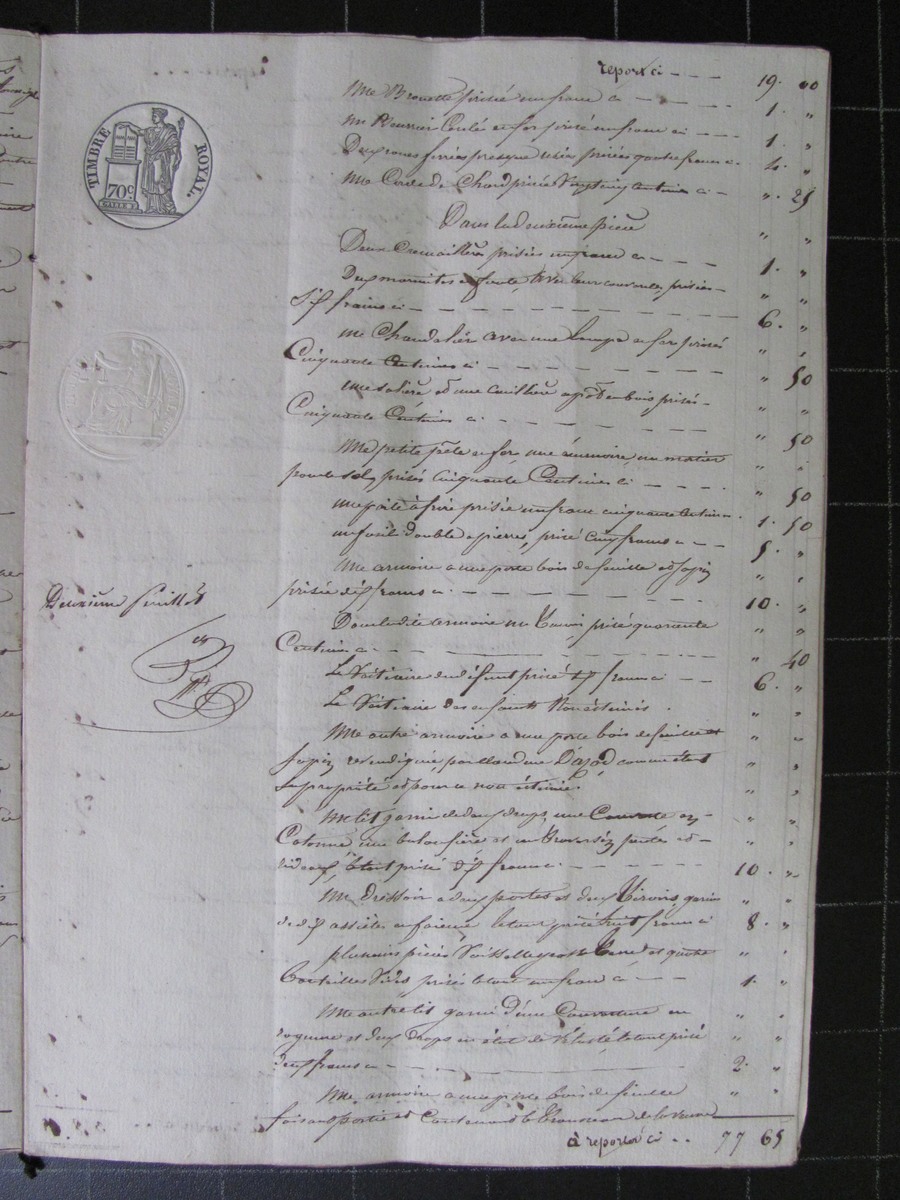 report ci - - - 19. 00
TIMBRE ROYAL.
70c
Une Brouette prisée un franc ci - - - - 1. "
un Coulé en fer prisé un franc ci - - - 1. "
Deux roues ferrées presque usées prisées quatre francs ci 4. "
Une Corde de Chard prisée Vingt cinq Centimes ci - ". 25
Dans la deuxième pièce " "
Deux Cremaillères prisées un franc ci - - - 1. "
Deux marmites en fonte avec leur couvercle, prisées " "
Six francs ci - - - - 6. "
un Chandelier avec une Lampe en fer prisés " "
Cinquante Centimes ci - - - - " 50
une salière et une Cuillière à pot en bois prisées " "
Cinquante Centimes ci - - - - " 50
Une petite pèle en fer une un mortier " "
pour le sel, prisés Cinquante Centimes ci - - - " 50
une poile à frire prisée un franc cinquante Centimes. 1. 50
un fusil double à pierres, prisé Cinq francs ci - - 5. "
Une armoire à une porte bois de feuille et sapin " "
prisée dix francs ci. - - - - 10. "
Deuxième feuillet
Dans ladite armoire un prisé quarante " "
Centimes ci - - - - " 40
Le Vestiaire du défunt prisé six francs ci - - 6. "
Le Vestiaire des enfants Non estimés. " "
Une autre armoire à une porte bois de feuille et " "
sapin revendiquée par comme étant " "
sa propriété et pour ce non estimée " "
Un lit garni de deux draps, une Couverte en " "
Cotonne, une balouffière et un traversin, et " "
rideaux, le tout prisé dix francs. - - - - 10. "
Un Dressoir à deux portes et deux Tiroirs, garni " "
de dix assiètes en faïence le tout prisé huit francs ci 8. "
plusieurs pièces Vaisselle grosse terre et quatre " "
bouteilles Vides prisés le tout un franc ci - - - 1. "
Un autre lit garni d'une Couverture en " "
et deux draps en état de vétusté le tout prisé " "
deux francs ci - - - - 2. "
Une armoire à une porte bois de feuille " "
faisant partie et Contenant le trousseau de la Veuve
à reporter ci - - 77 65